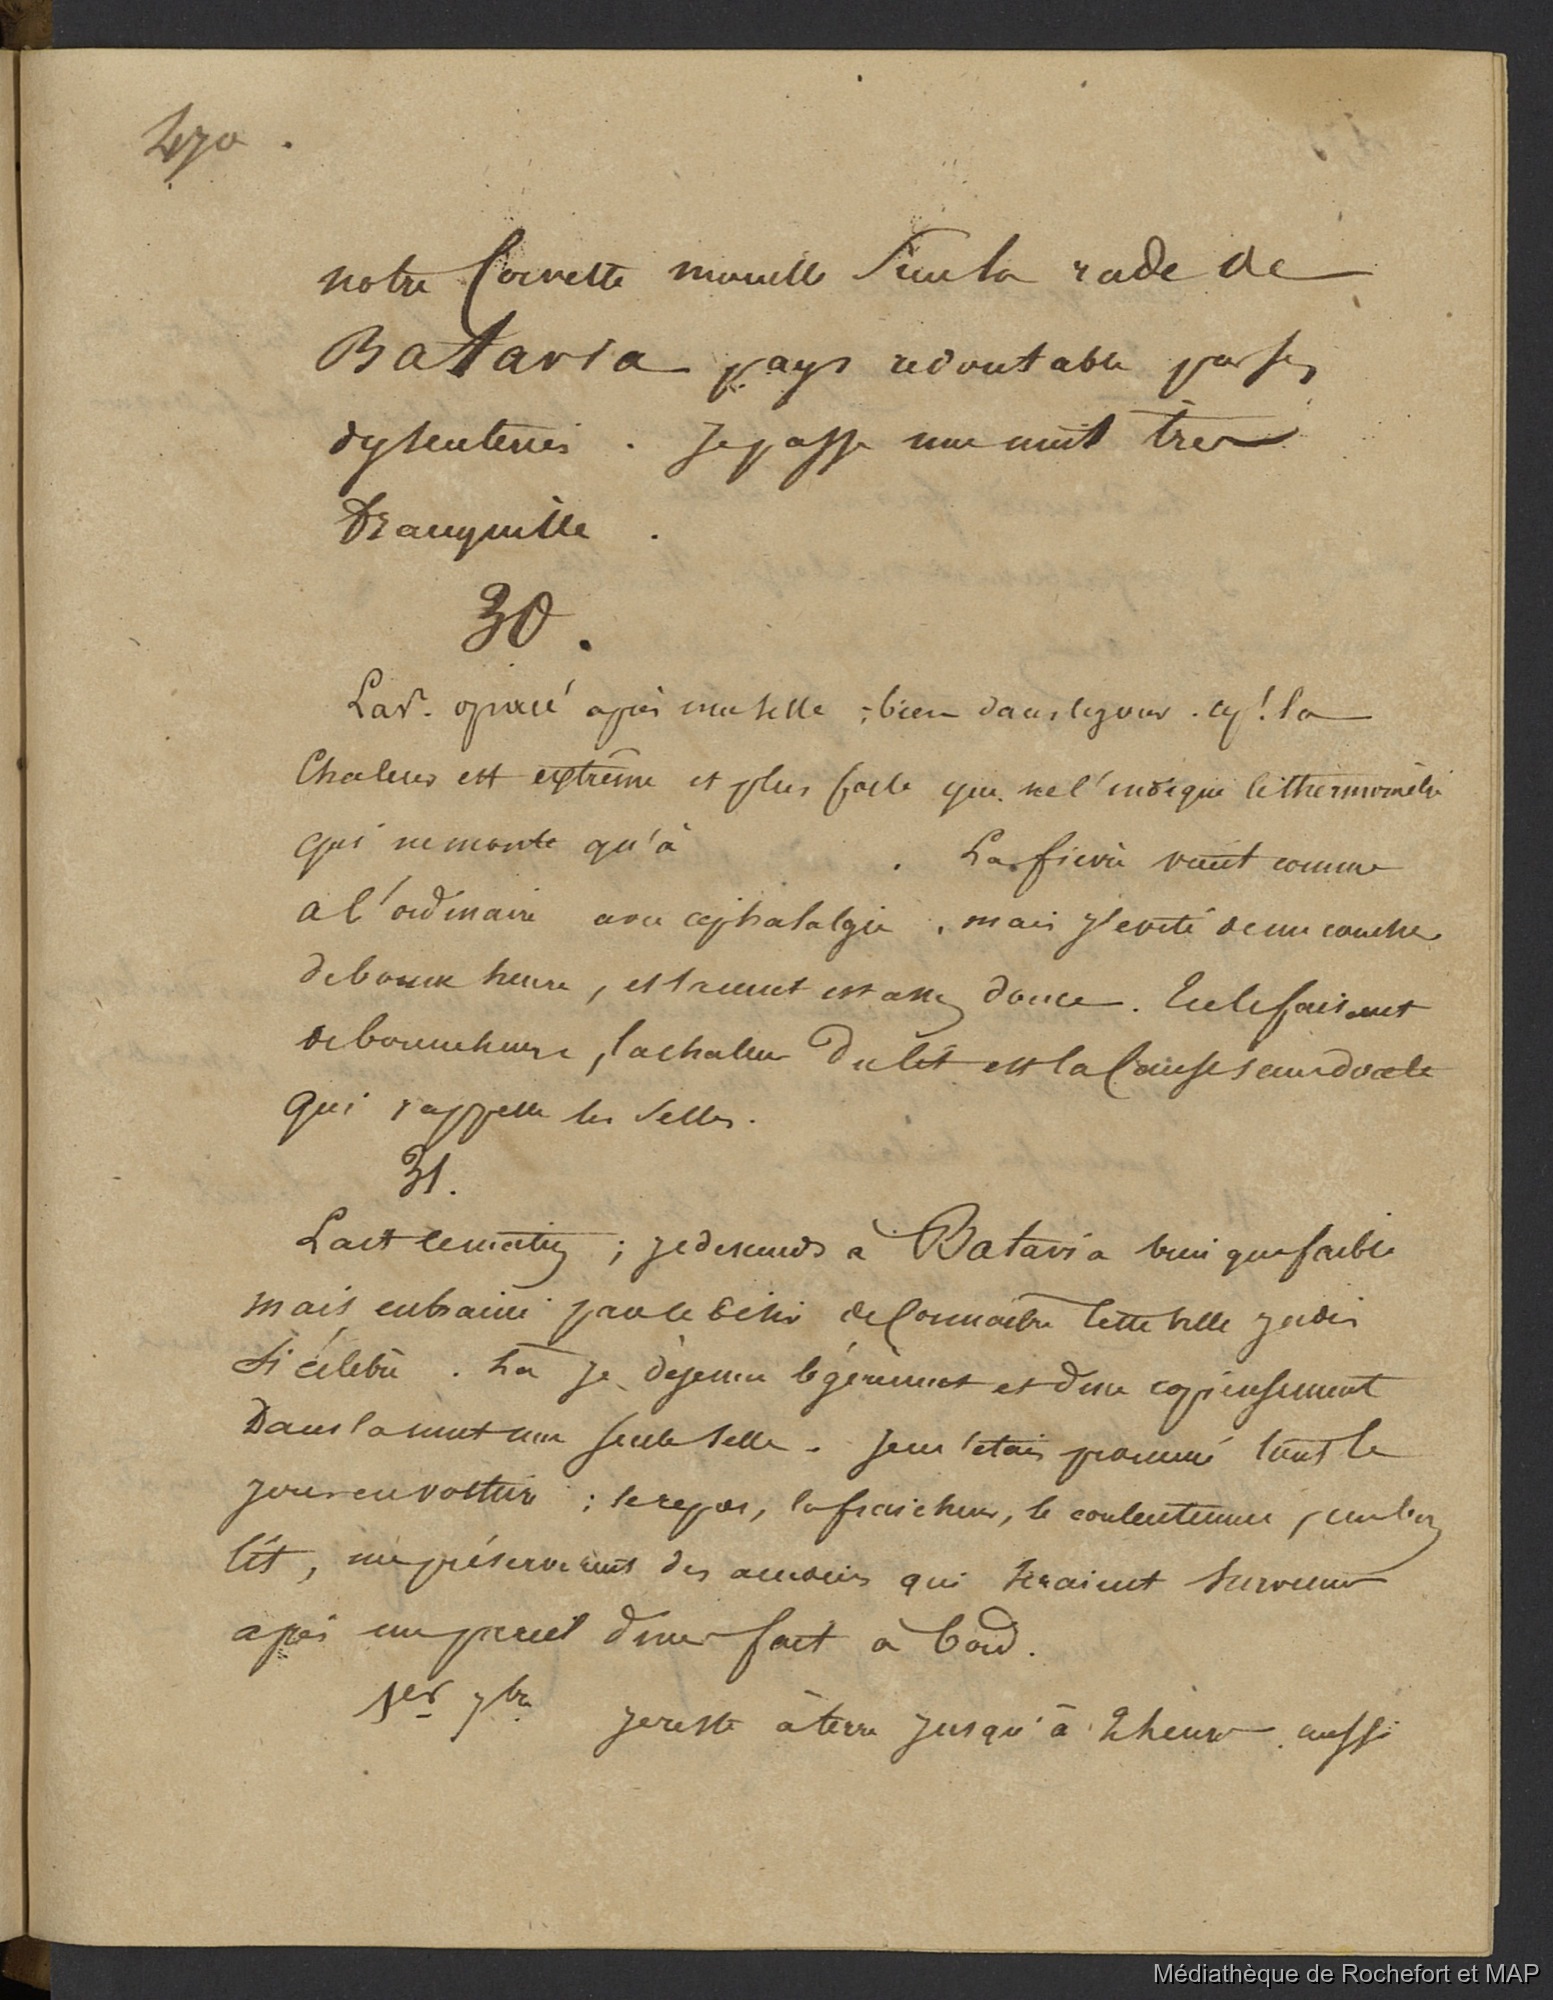 470.
notre Corvette mouille sur la rade de
Batavia pays redoutable par ses
dysenteries. je passe une nuit très
tranquille.
30.
Lavt. opiacé après une selle ; bien dans le jour. la
Chaleur est extrême et plus forte que ne l'indique le thermomètre
qui ne monte qu'à . La fievre vient comme
a l'ordinaire avec céphalalgie, mais j'evite de me coucher
de bonne heure, et la nuit est assez douce. En le faisant
de bonne heure, la chaleur du lit est la cause
qui rappelle les selles.
31.
Lavt le matin ; je descends à Batavia bien que faible
mais entrainé par le désir de Connaitre cette ville jadis
si célebre. Là je déjeune légèrement et dine copieusement
Dans la nuit une seule selle. je m'étais promené tout le
jour en voiture ; le repos, la fraicheur, le contentement, un bon
lit, me préservèrent des accidens qui seraient survenus
après un pareil diner fait à bord.
1er 7bre je reste à terre jusqu'à 2 heures. aussi
Médiathèque de Rochefort et MAP